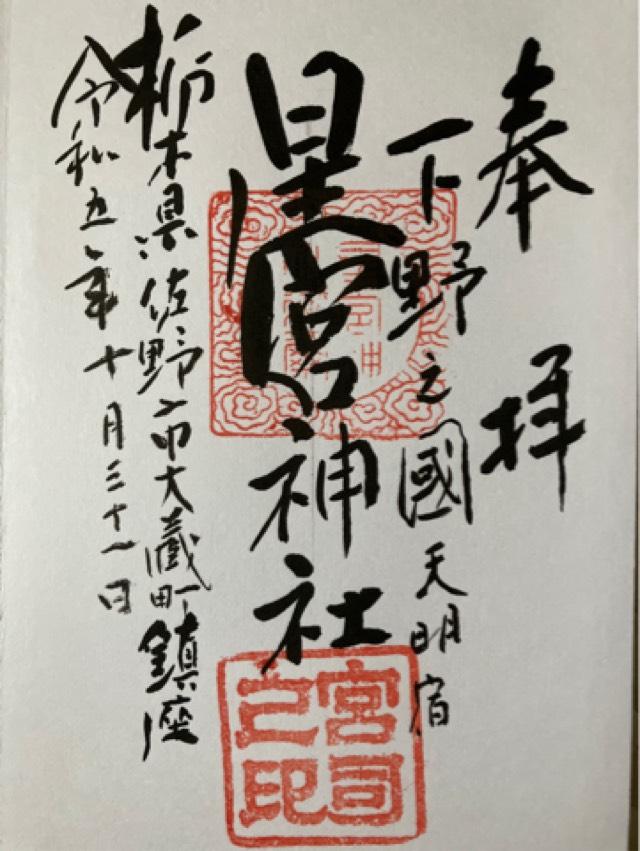 奉拝
下野之國天明宿
星宮神社
栃木県佐野市大蔵町鎮座
令和五年十月三十一日
宮司之印